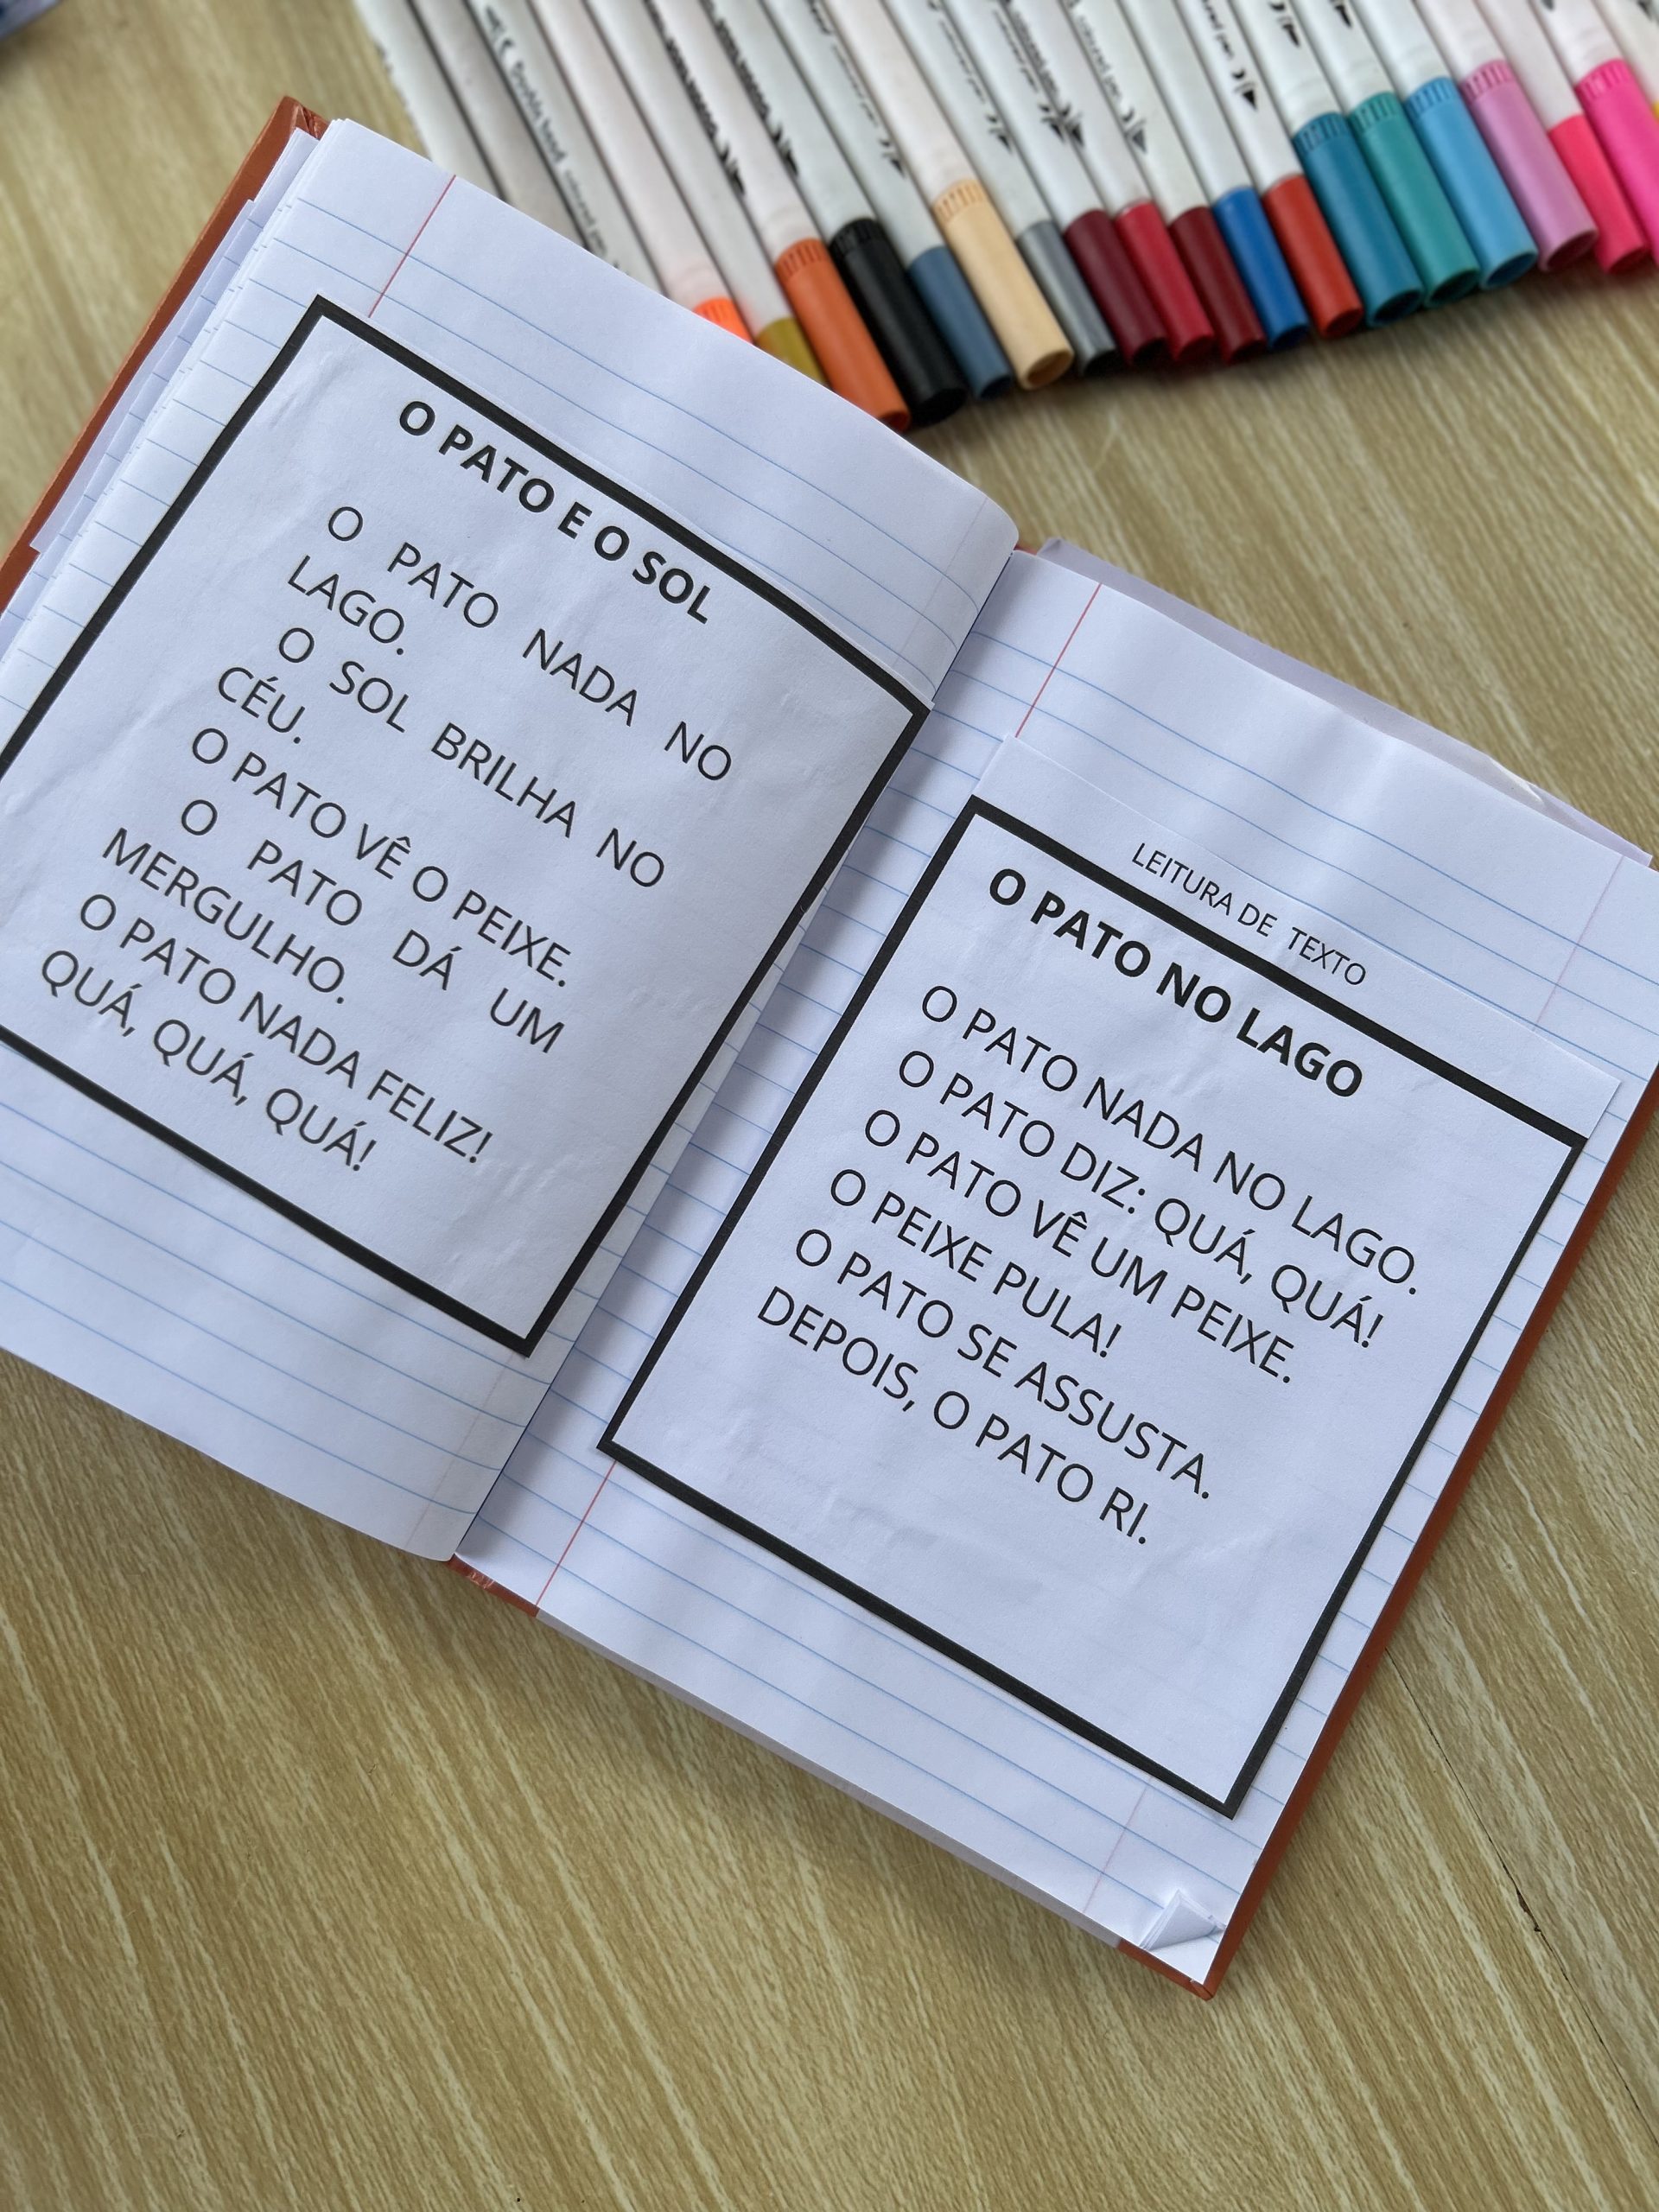 O PATO E O SOL
O PATO NADA NO
LAGO.
O SOL BRILHA NO
CÉU.
O PATO VÊ O PEIXE.
O PATO DÁ UM
MERGULHO.
O PATO NADA FELIZ!
QUÁ, QUÁ, QUÁ!
LEITURA DE TEXTO
O PATO NO LAGO
O PATO NADA NO LAGO.
O PATO DIZ: QUÁ, QUÁ!
O PATO VÊ UM PEIXE.
O PEIXE PULA!
O PATO SE ASSUSTA.
DEPOIS, O PATO RI.